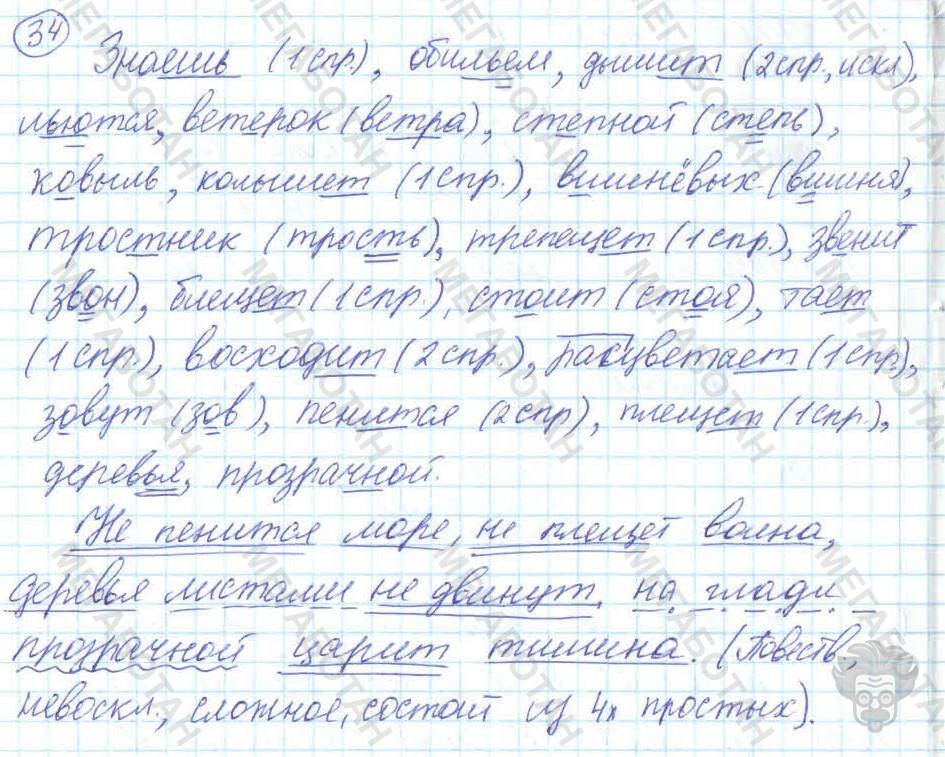 34
Знаешь (1 спр.), обильем, дышит (2 спр., искл),
льются, ветерок (ветра), степной (степь),
ковыль, колышет (1 спр.), вишнёвых (вишня),
тростник (трость), трепещет (1 спр.), звенит
(звон), блещет (1 спр.), стоит (стоя), тает
(1 спр.), восходит (2 спр.), расцветает (1 спр.),
зовут (зов), пенится (2 спр), плещет (1 спр.),
деревья, прозрачной.
Не пенится море, не плещет волна,
деревья листами не двинут, на глади
прозрачной царит тишина. (Повеств.,
невоскл., сложное, состоит из 4х простых).
МЕГАБОТАН